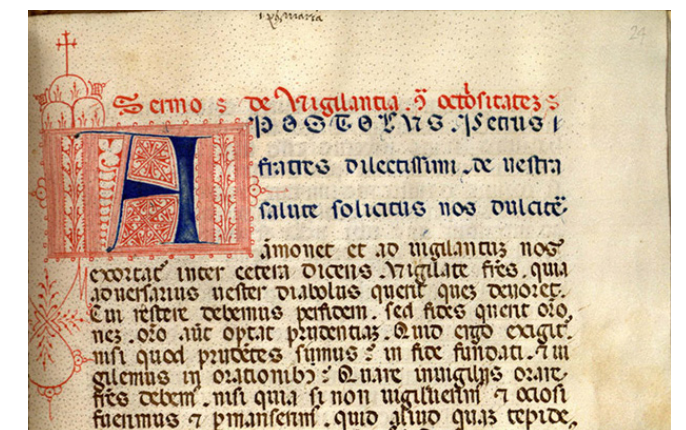 24
Sermo s de vigilantia. ꝯ̃ octōsitatez s
APOSTOLUS. Petrus i
fratres dilectissimi, de uestra
salute solicitus nos dulcit̄
amonet et ad uigilantiaz nos
exortat̄ inter cetera dicens. Vigilate fr̄es. quia
aduersarius uester diabolus querit quez deuoret.
Cui resistere debemus per fidem. sed fides querit or̄o
nez. or̄o aūt optat prudentiaz. Quid ergo exigit̄.
nisi quod prudētes simus: in fide fundati. ⁊ ui
gilemus in orationibꝫ: Quare inuigilijs orare
fr̄es debem̄. nisi quia si non uigiluerim̄ ⁊ ociosi
fuerimus ⁊ ꝑmanserim̄. quid aliud quaz tepide,